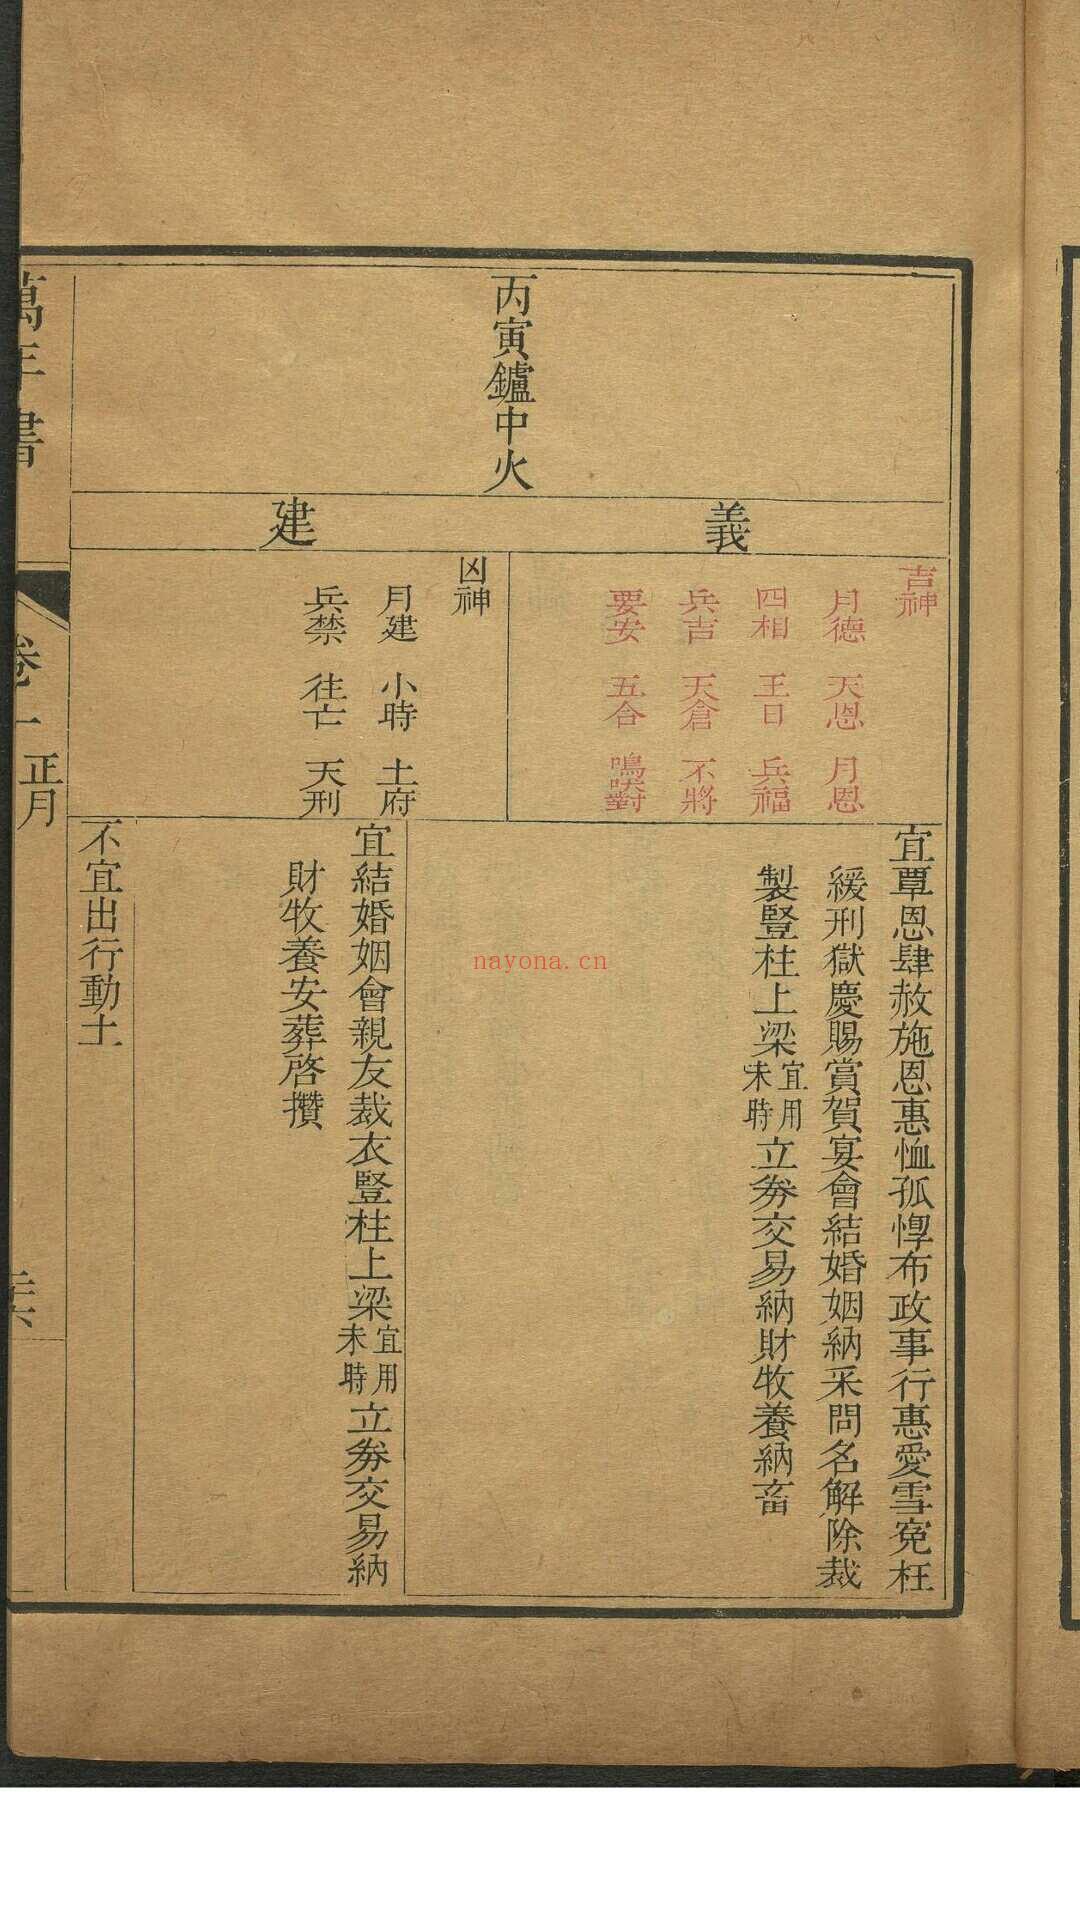 丙寅鑪中火
義
建
吉神
月德 天恩 月恩
四相 王日 兵福
兵吉 天倉 不將
要安 五合 鳴吠對
凶神
月建 小時 土府
兵禁 往亡 天刑
宜覃恩肆赦施恩惠恤孤惸布政事行惠愛雪寃枉
緩刑獄慶賜賞賀宴會結婚姻納采問名解除裁
製豎柱上梁宜用未時立劵交易納財牧養納畜
宜結婚姻會親友裁衣豎柱上梁宜用未時立劵交易納
財牧養安葬啓攢
不宜出行動土
萬年書
卷一
正月
nayona.cn